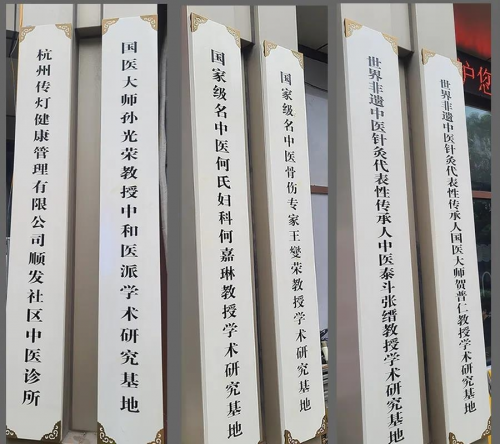 杭州传灯健康管理有限公司顺发社区中医诊所
国医大师孙光荣教授中和医派学术研究基地
国家级名中医何氏妇科何嘉琳教授学术研究基地
国家级名中医骨伤专家王燮荣教授学术研究基地
世界非遗中医针灸代表性传承人中医泰斗张缙教授学术研究基地
世界非遗中医针灸代表性传承人国医大师贺普仁教授学术研究基地
户您